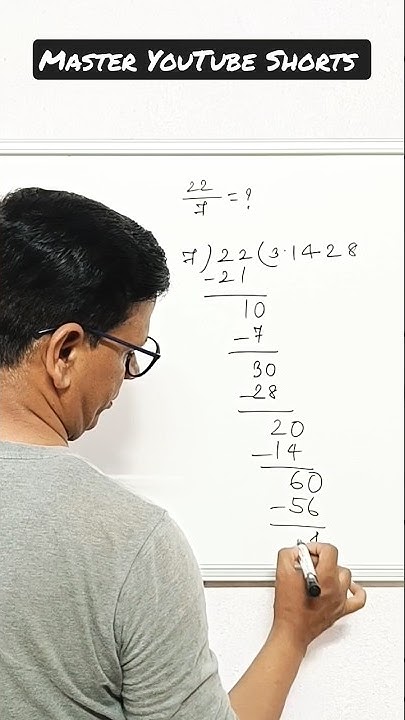 Master YouTube Shorts
22
7 = ?
7 ) 22 ( 3.1428
-21
10
-7
30
-28
20
-14
60
-56